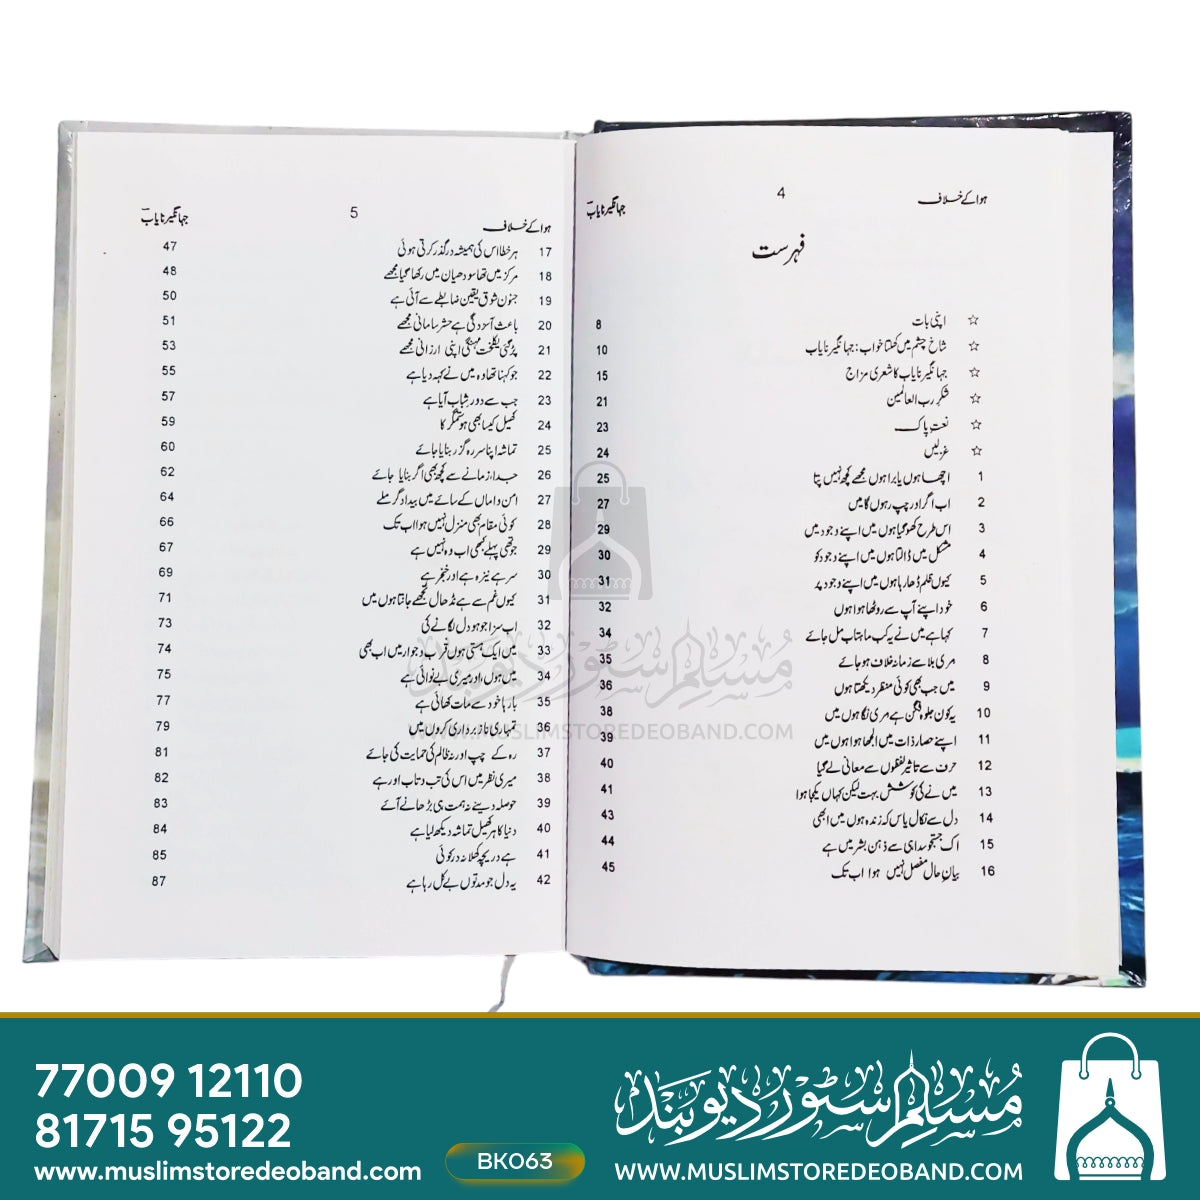 ہوا کے خلاف 4 جہانگیر نایاب
فہرست
☆ اپنی بات 8
☆ شاخ چشم میں کھلتا خواب : جہانگیر نایاب 10
☆ جہانگیر نایاب کا شعری مزاج 15
☆ شکر رب العالمین 21
☆ نعت پاک 23
☆ غزلیں 24
1 اچھا ہوں یا برا ہوں مجھے کچھ نہیں پتا 25
2 اب اگر اور چپ رہوں گا میں 27
3 اس طرح کھو گیا ہوں میں اپنے وجود میں 29
4 مشکل میں ڈالتا ہوں میں اپنے وجود کو 30
5 کیوں ظلم ڈھا رہا ہوں میں اپنے وجود پر 31
6 خود اپنے آپ سے روٹھا ہوا ہوں 32
7 کہا ہے میں نے یہ کب ماہتاب مل جائے 34
8 مری بلا سے زمانہ خلاف ہو جائے 35
9 میں جب بھی کوئی منظر دیکھتا ہوں 36
10 یہ کون جلوہ فگن ہے مری نگاہوں میں 38
11 اپنے حصار ذات میں الجھا ہوا ہوں میں 39
12 حرف سے تاثیر لفظوں سے معانی لے گیا 40
13 میں نے کی کوشش بہت لیکن کہاں یکجا ہوا 41
14 دل سے نکال یاس کہ زندہ ہوں میں ابھی 43
15 اک جستجو سدا ہی سے ذہن بشر میں ہے 44
16 بیان حال مفصل نہیں ہوا اب تک 45
ہوا کے خلاف 5 جہانگیر نایاب
17 ہر خطا اس کی ہمیشہ درگذر کرتی ہوئی 47
18 مرکز میں تھا سو دھیان میں رکھا گیا مجھے 48
19 جنون شوق یقین ضابطے سے آئی ہے 50
20 باعث آسودگی ہے حشر سامانی مجھے 51
21 پڑ گئی یکلخت مہنگی اپنی ارزانی مجھے 53
22 جو کہنا تھا وہ میں نے کہہ دیا ہے 55
23 جب سے دور شباب آیا ہے 57
24 کھیل کیسا بھی ہو ستمگر کا 59
25 تماشہ اپنا سر رہ گزر بنایا جائے 60
26 جدا، زمانے سے کچھ بھی اگر بنایا جائے 62
27 امن و اماں کے سائے میں بیدادگر ملے 64
28 کوئی مقام بھی منزل نہیں ہوا اب تک 66
29 جو تھی پہلے کبھی اب وہ نہیں ہے 67
30 سر ہے نیزہ ہے اور خنجر ہے 69
31 کیوں غم سے ہے نڈھال مجھے جانتا ہوں میں 71
32 اب سزا جو ہو دل لگانے کی 73
33 میں ایک بستی ہوں قرب و جوار میں اب بھی 74
34 میں ہوں، اور میری بے نوائی ہے 75
35 بارہا خود سے مات کھائی ہے 77
36 تمہاری ناز برداری کروں میں 79
37 رہ کے چپ اور نہ ظالم کی حمایت کی جائے 81
38 میری نظر میں اس کی تب و تاب اور ہے 82
39 حوصلہ دینے نہ ہمت ہی بڑھانے آئے 83
40 دنیا کا ہر کھیل تماشہ دیکھ لیا ہے 84
41 ہے دریچہ کھلا نہ در کوئی 85
42 یہ دل جو مدتوں بے کل رہا ہے 87
مسلم سٹور دیوبند
WWW.MUSLIMSTOREDEOBAND.COM
77009 12110
81715 95122
www.muslimstoredeoband.com
BK063
مسلم سٹور دیوبند
WWW.MUSLIMSTOREDEOBAND.COM